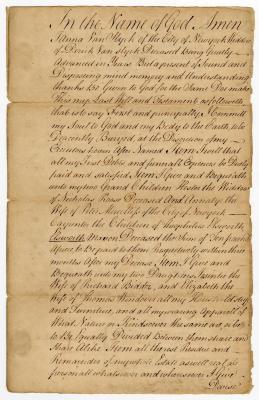 In the Name of God Amen
I Anna Van Slyck of the City of New York Widdow
of Derick Van Slyck Deceased Being Greatly
Advanced in Years But a present of Sound and
Disposing mind memory and Understanding
thanks be Given to God for the Same Doe make
This my Last Will and Testament as followeth
that is to say First and principally I Commend
my Soul to God and my Body to the Earth to be
Decently Buryed at the Discretion of my
Executors herein After Named Item I will that
all my Just Debts and funerall Expences be Duely
paid and satisfied Item I Give and Bequeath
unto my two Grand Children Hester the Widdow
of Nicholas Deceased and Annatje the
Wife of Peter of the City of New York
Carpenter the Children of
Mason Deceased the Sum of Ten pound
apiece to be paid to them Respectively within three
months After my Decease Item I Give and
Bequeath unto my two Daughters the
Wife of Richard and Elizabeth the
Wife of Thomas Windover all my Household Stuff
and Furniture and all my wearing Apparell of
What Nature or Kind soever the same are, is to be
to be Equally Divided Between them share and
Share Alike Item all the rest Residue and
Remainder of my Estate as well real as
personall whatsoever and wheresoever I Give
Devise